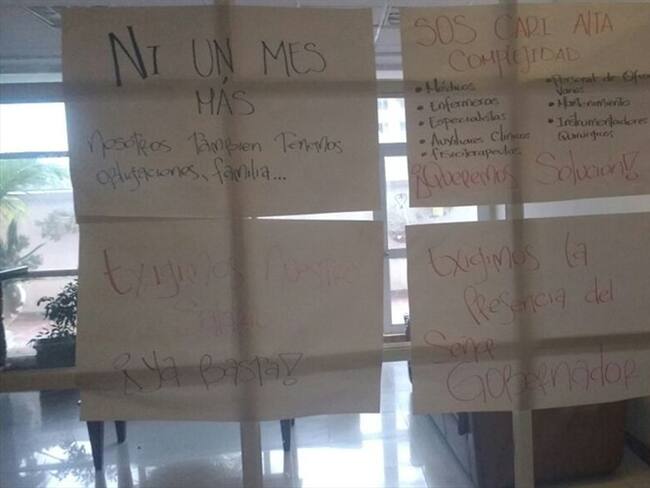 NI UN MES
MÁS
Nosotros También Tenemos
obligaciones, familia...
SOS CARI ALTA
COMPLEJIDAD
• Médicos
• Enfermeras
• Especialistas
• Auxiliares Clínicos
• fisioterapeutas
• Personal de Oficios
Varios
• Mantenimiento
• Instrumentadores
Quirúrgicos
¡¡Queremos Solución!!
Exigimos Nuestro
Salario
¡¡Ya Basta!!
Exigimos la
Presencia del
Señor
Gobernador